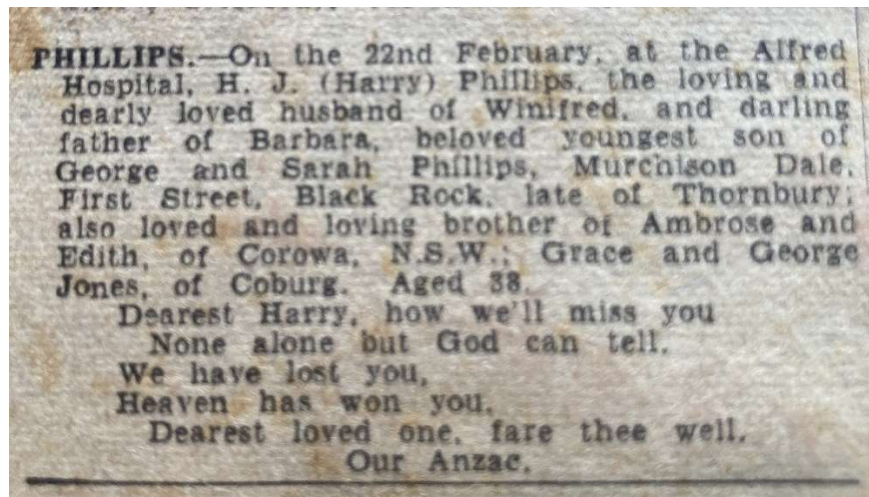 PHILLIPS.—On the 22nd February, at the Alfred
Hospital, H. J. (Harry) Phillips, the loving and
dearly loved husband of Winifred, and darling
father of Barbara, beloved youngest son of
George and Sarah Phillips, Murchison Dale,
First Street, Black Rock, late of Thornbury;
also loved and loving brother of Ambrose and
Edith, of Corowa, N.S.W.; Grace and George
Jones, of Coburg. Aged 38.
Dearest Harry, how we'll miss you
None alone but God can tell.
We have lost you,
Heaven has won you,
Dearest loved one, fare thee well.
Our Anzac.